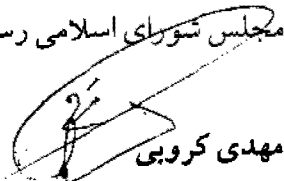 مجلس شورای اسلامی رس
مهدی کروبی